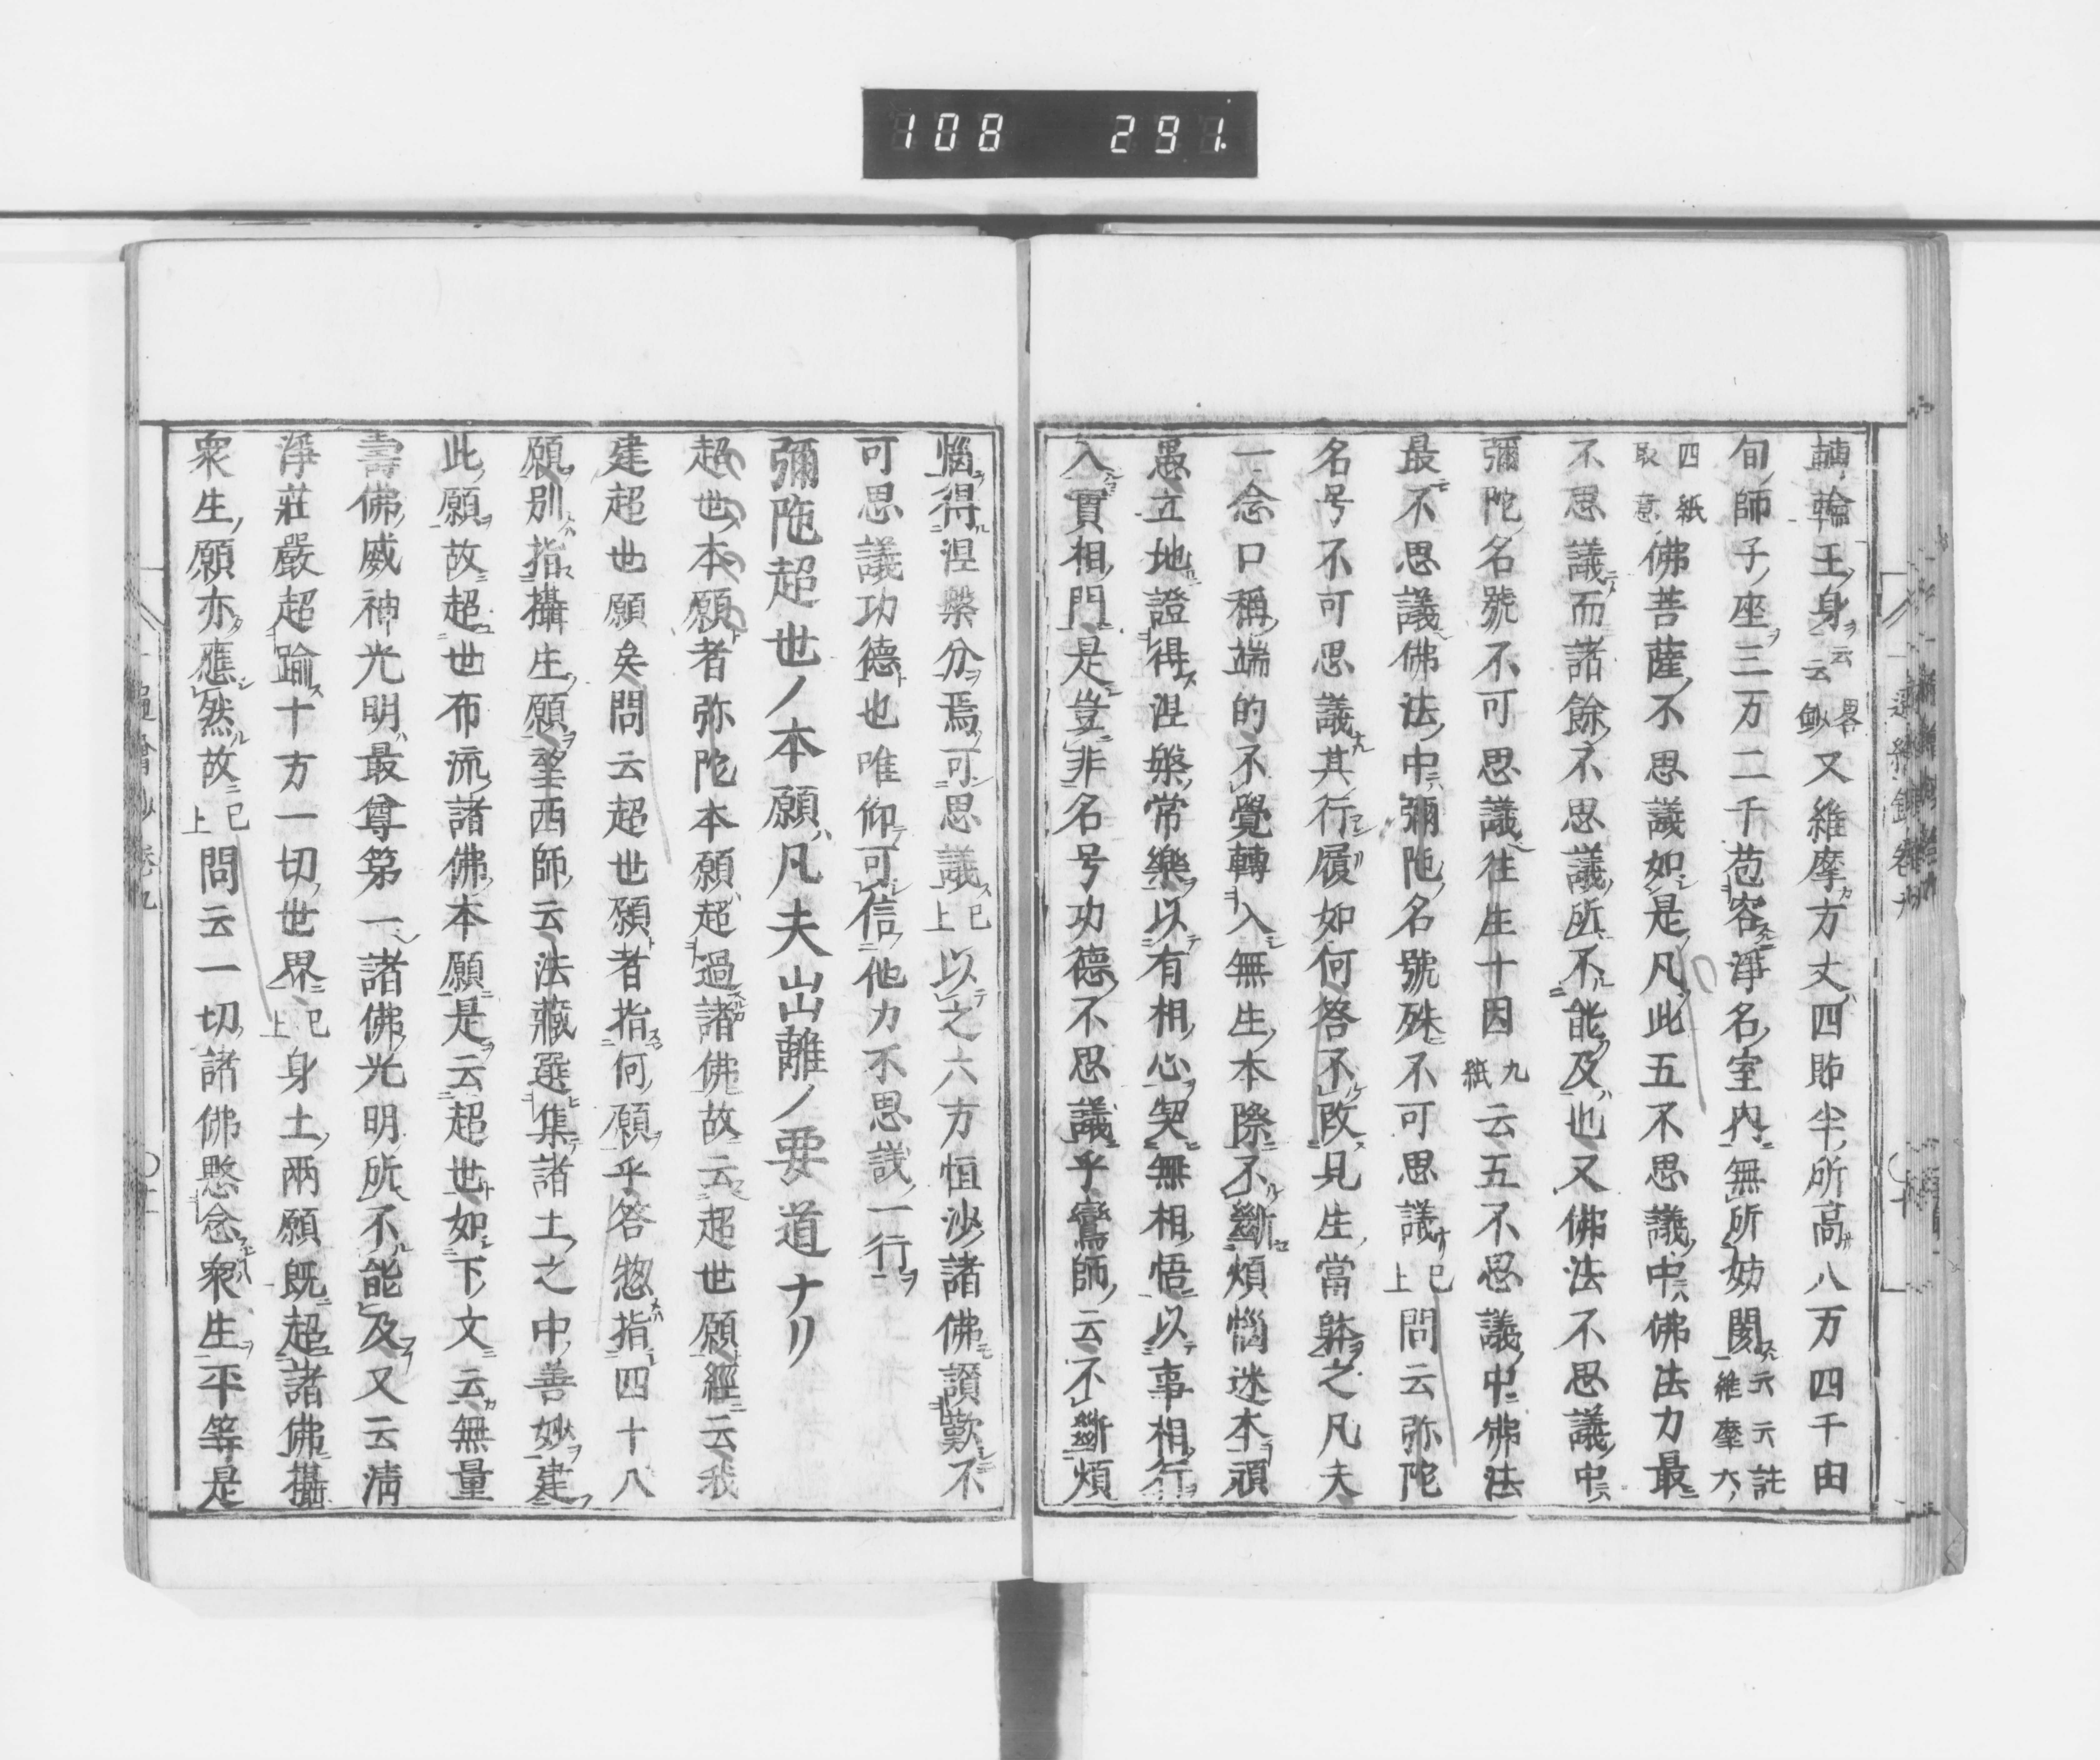 108 291
轉輪王身云云 畧鈔又維摩方丈四眎半所高八万四千由
旬師子座三万二千苞容淨名室内無所妨閡云云 註維摩六
四紙取意佛菩薩不思議如是凡此五不思議中佛法力最
不思議而諸餘不思議所不能及也又佛法不思議中
彌陀名號不可思議往生十因九紙云五不思議中佛法
最不思議佛法中彌陀名號殊不可思議已上問云弥陀
名号不可思議其行履如何答不改見生當躰之凡夫
一念口稱端的不覺轉入無生本際不斷煩惱迷本頑
愚立地證得涅槃常樂以有相心契無相悟以事相行
入實相門是豈非名号功德不思議乎鸞師云不斷煩
惱得涅槃分焉可思議已上以之六方恒沙諸佛讃歎不
可思議功德也唯仰可信他力不思議一行
彌陁超世ノ本願ハ凡夫出離ノ要道ナリ
超世本願者弥陀本願超過諸佛故云超世願經云我
建超世願矣問云超世願者指何願乎答惣指四十八
願別指攝生願望西師云法藏選集諸土之中善妙建
此願故超世布流諸佛本願是云超世如下文云無量
壽佛威神光明最尊第一諸佛光明所不能及又云淸
淨莊嚴超踰十方一切世界已上身土兩願既超諸佛攝
衆生願亦應然故已上問云一切諸佛愍念衆生平等是